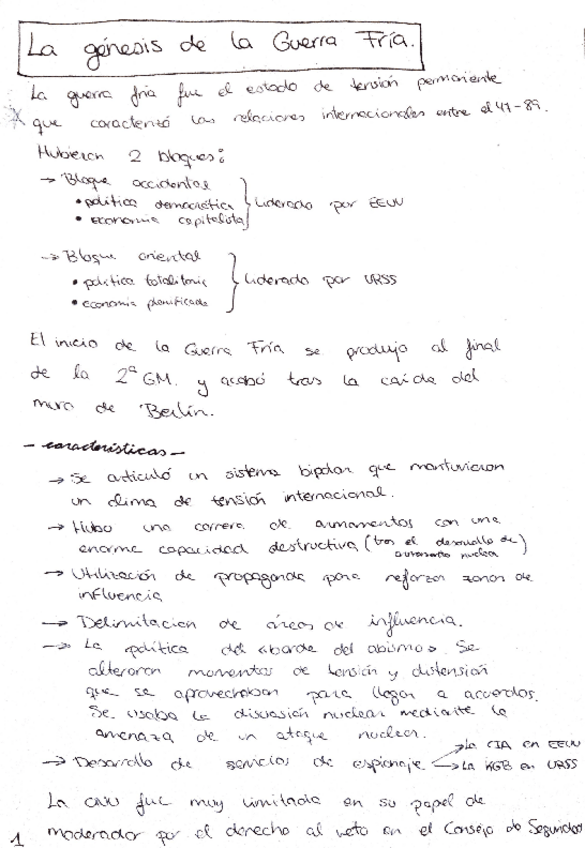 La génesis de la Guerra Fría.
La guerra fría fue el estado de tensión permanente
que caracterizó las relaciones internacionales entre el 47-89.
Hubieron 2 bloques:
→ Bloque occidental
• política democrática
• economía capitalista
liderado por EEUU
→ Bloque oriental
• política totalitaria
• economía planificada
liderado por URSS
El inicio de la Guerra Fría se produjo al final
de la 2ª GM. y acabó tras la caída del
muro de Berlín.
- características -
→ Se articuló un sistema bipolar que mantuvieron
un clima de tensión internacional.
→ Hubo una carrera de armamentos con una
enorme capacidad destructiva (tras el desarrollo de
armamento nuclear)
→ Utilización de propaganda para reforzar zonas de
influencia
→ Delimitación de áreas de influencia.
→ La política del «borde del abismo». Se
alteraron momentos de tensión y distensión
que se aprovechaban para llegar a acuerdos.
Se usaba la disuasión nuclear mediante la
amenaza de un ataque nuclear.
→ Desarrollo de servicios de espionaje
→ La CIA en EEUU
→ La KGB en URSS
La ONU fue muy limitada en su papel de
moderador por el derecho al veto en el Consejo de Seguridad
1